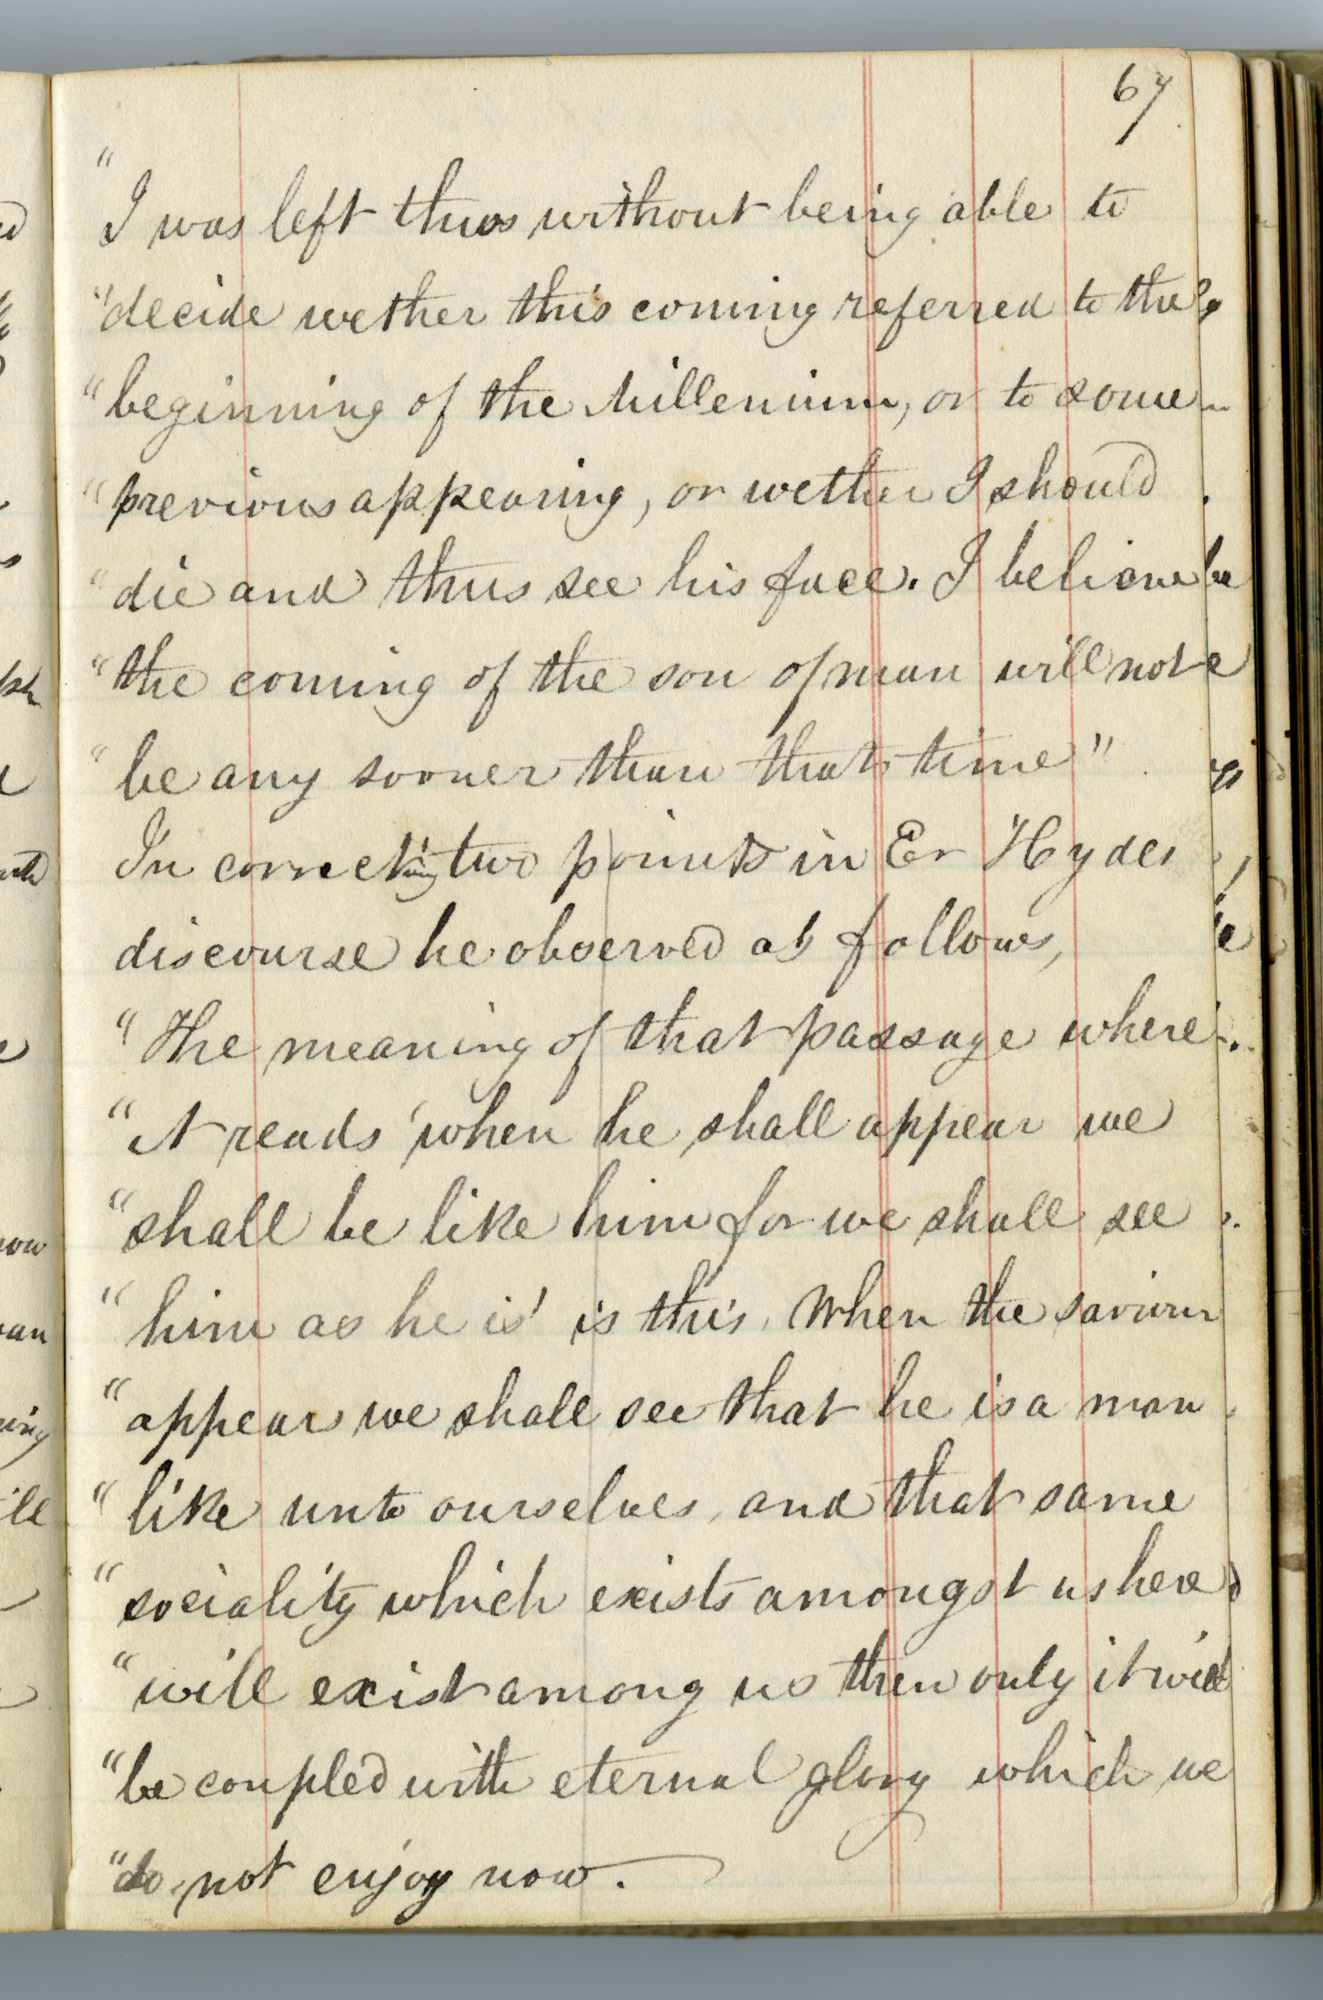 67
"
I was left thus without being able to
"decide wether this coming referred to the
"beginning of the Millenium, or to some
"previous appearing, or wether I should
"die and thus see his face. I believe
"the coming of the son of man will not
"be any sooner than that time"
In correcting two points in Er Hydes
discourse he observed as follows,
"The meaning of that passage where
"it reads 'when he shall appear we
"shall be like him for we shall see
"him as he is' is this, When the saviour
"appears we shall see that he is a man
"like unto ourselves, and that same
"sociality which exists amongst us here
"will exist among us then only it will
"be coupled with eternal glory which we
"do not enjoy now.